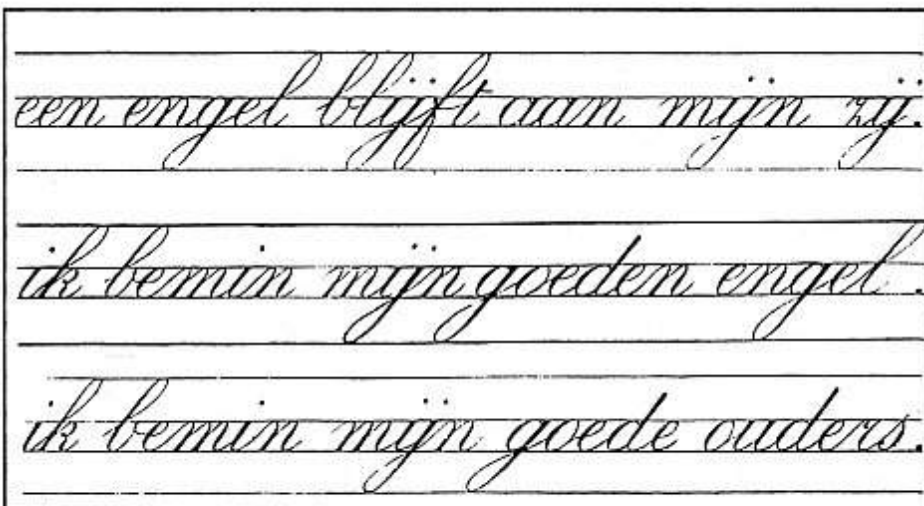 een engel blijft aan mijn zij.
ik bemin mijn goeden engel.
ik bemin mijn goede ouders.